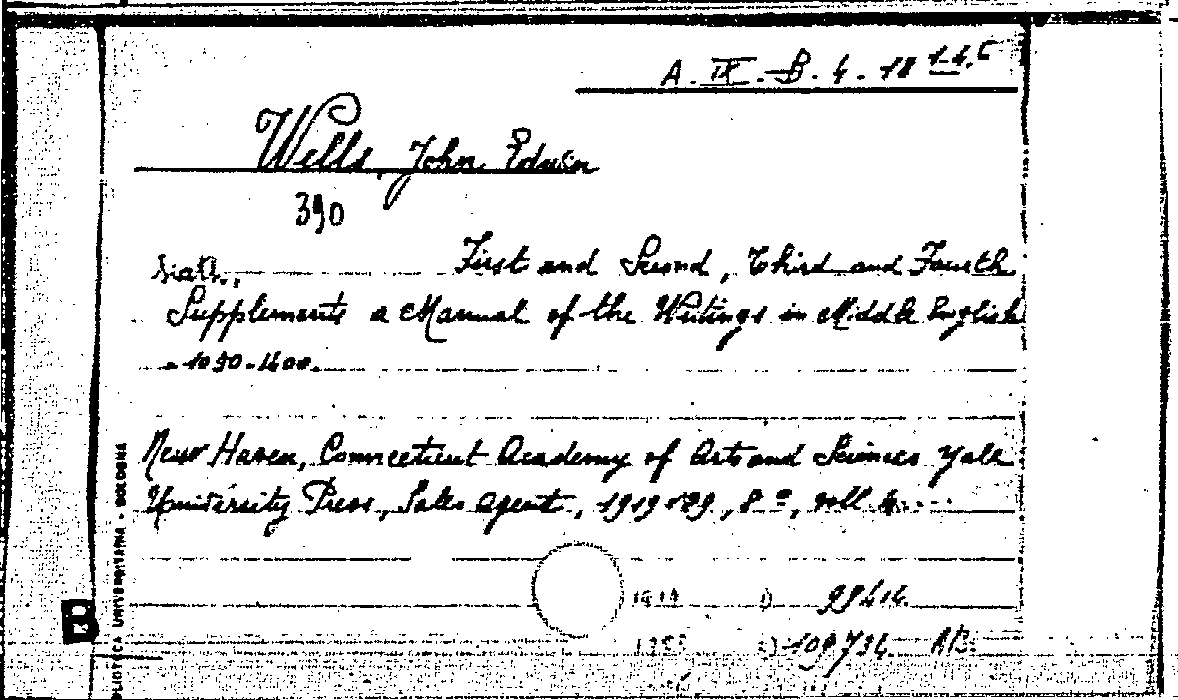 A. IX. B. 4. 18
Wells, John Edwin
390
First and Second, Third and Fourth
Supplements a Manual of the Writings in Middle English
New Haven, Connecticut Academy of Arts and Sciences Yale
University Press, Sales Agent, 1919-29, 8º, voll. 4.
109734
BIBLIOTECA UNIVERSITARIA - BOLOGNA